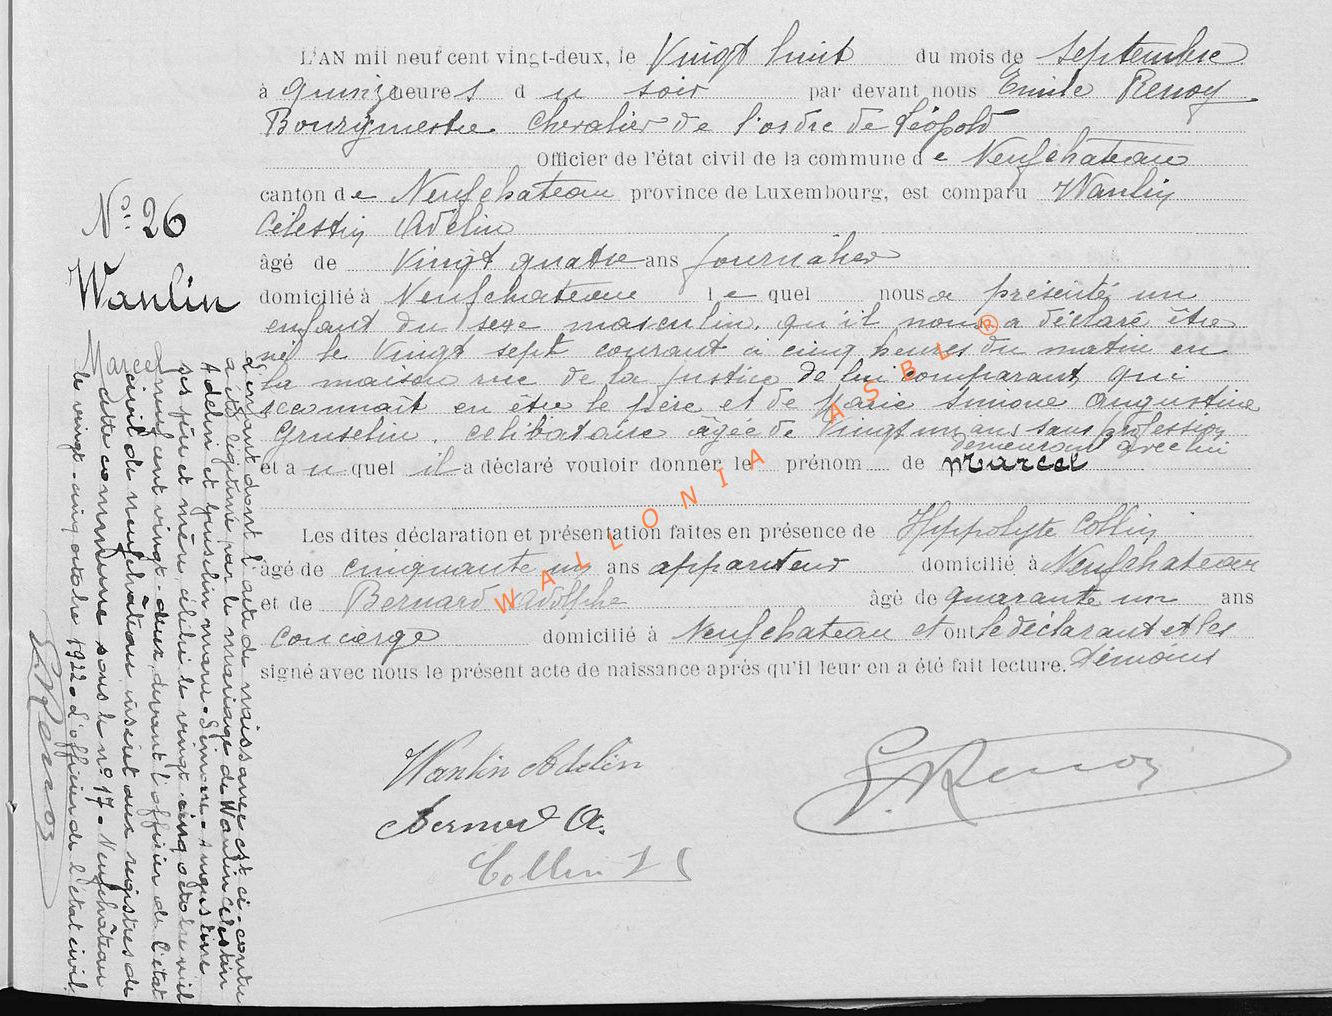 L'AN mil neuf cent vingt-deux, le Vingt huit du mois de Septembre
à Quinze heures du soir par devant nous Emile Renoy
Bourgmestre Chevalier de l'ordre de Léopold
Officier de l'état civil de la commune de Neufchateau
canton de Neufchateau province de Luxembourg, est comparu Wanlin
Célestin Adelin
âgé de Vingt quatre ans journalier
domicilié à Neufchateau lequel nous a présenté un
enfant du sexe masculin. qu'il nous a déclaré être
né le Vingt sept courant à cinq heures du matin en
la maison rue de la Justice de lui comparant, qui
reconnait en être le père et de Marie Simone Augustine
Gruselin. célibataire âgée de Vingt un ans sans profession
demeurant avec lui
et auquel il a déclaré vouloir donner le prénom de Marcel
Les dites déclaration et présentation faites en présence de Hyppolyte Collin
âgé de cinquante un ans appariteur domicilié à Neufchateau
et de Bernard Adolphe âgé de quarante un ans
concierge domicilié à Neufchateau et ont le déclarant et les
témoins
signé avec nous le présent acte de naissance après qu'il leur en a été fait lecture.
Wanlin Adelin
Bernard A.
Collin
E. Renoy
N° 26
Wanlin
Marcel
L'enfant dont l'acte de naissance est ci-contre
a été légitimé par le mariage de Wanlin Célestin
Adelin et Gruselin Marie-Simone-Augustine
ses père et mère, célébré le vingt-cinq octobre mil
neuf cent vingt-deux, devant l'officier de l'état
civil de Neufchâteau, inscrit aux registres de
cette commune sous le n° 17.- Neufchâteau
le vingt-cinq octobre 1922.- L'officier de l'état civil,
E. Renoy
WALLONIA ASBL ®